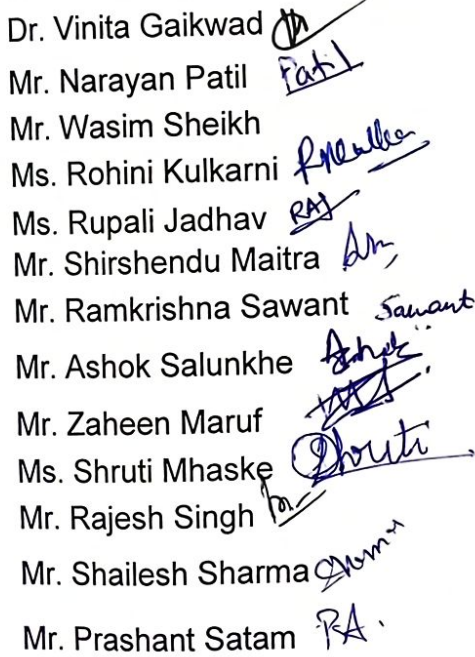 Dr. Vinita Gaikwad
Mr. Narayan Patil Patil
Mr. Wasim Sheikh
Ms. Rohini Kulkarni
Ms. Rupali Jadhav RAJ
Mr. Shirshendu Maitra
Mr. Ramkrishna Sawant Sawant
Mr. Ashok Salunkhe Ashok
Mr. Zaheen Maruf
Ms. Shruti Mhaske Shruti
Mr. Rajesh Singh
Mr. Shailesh Sharma
Mr. Prashant Satam